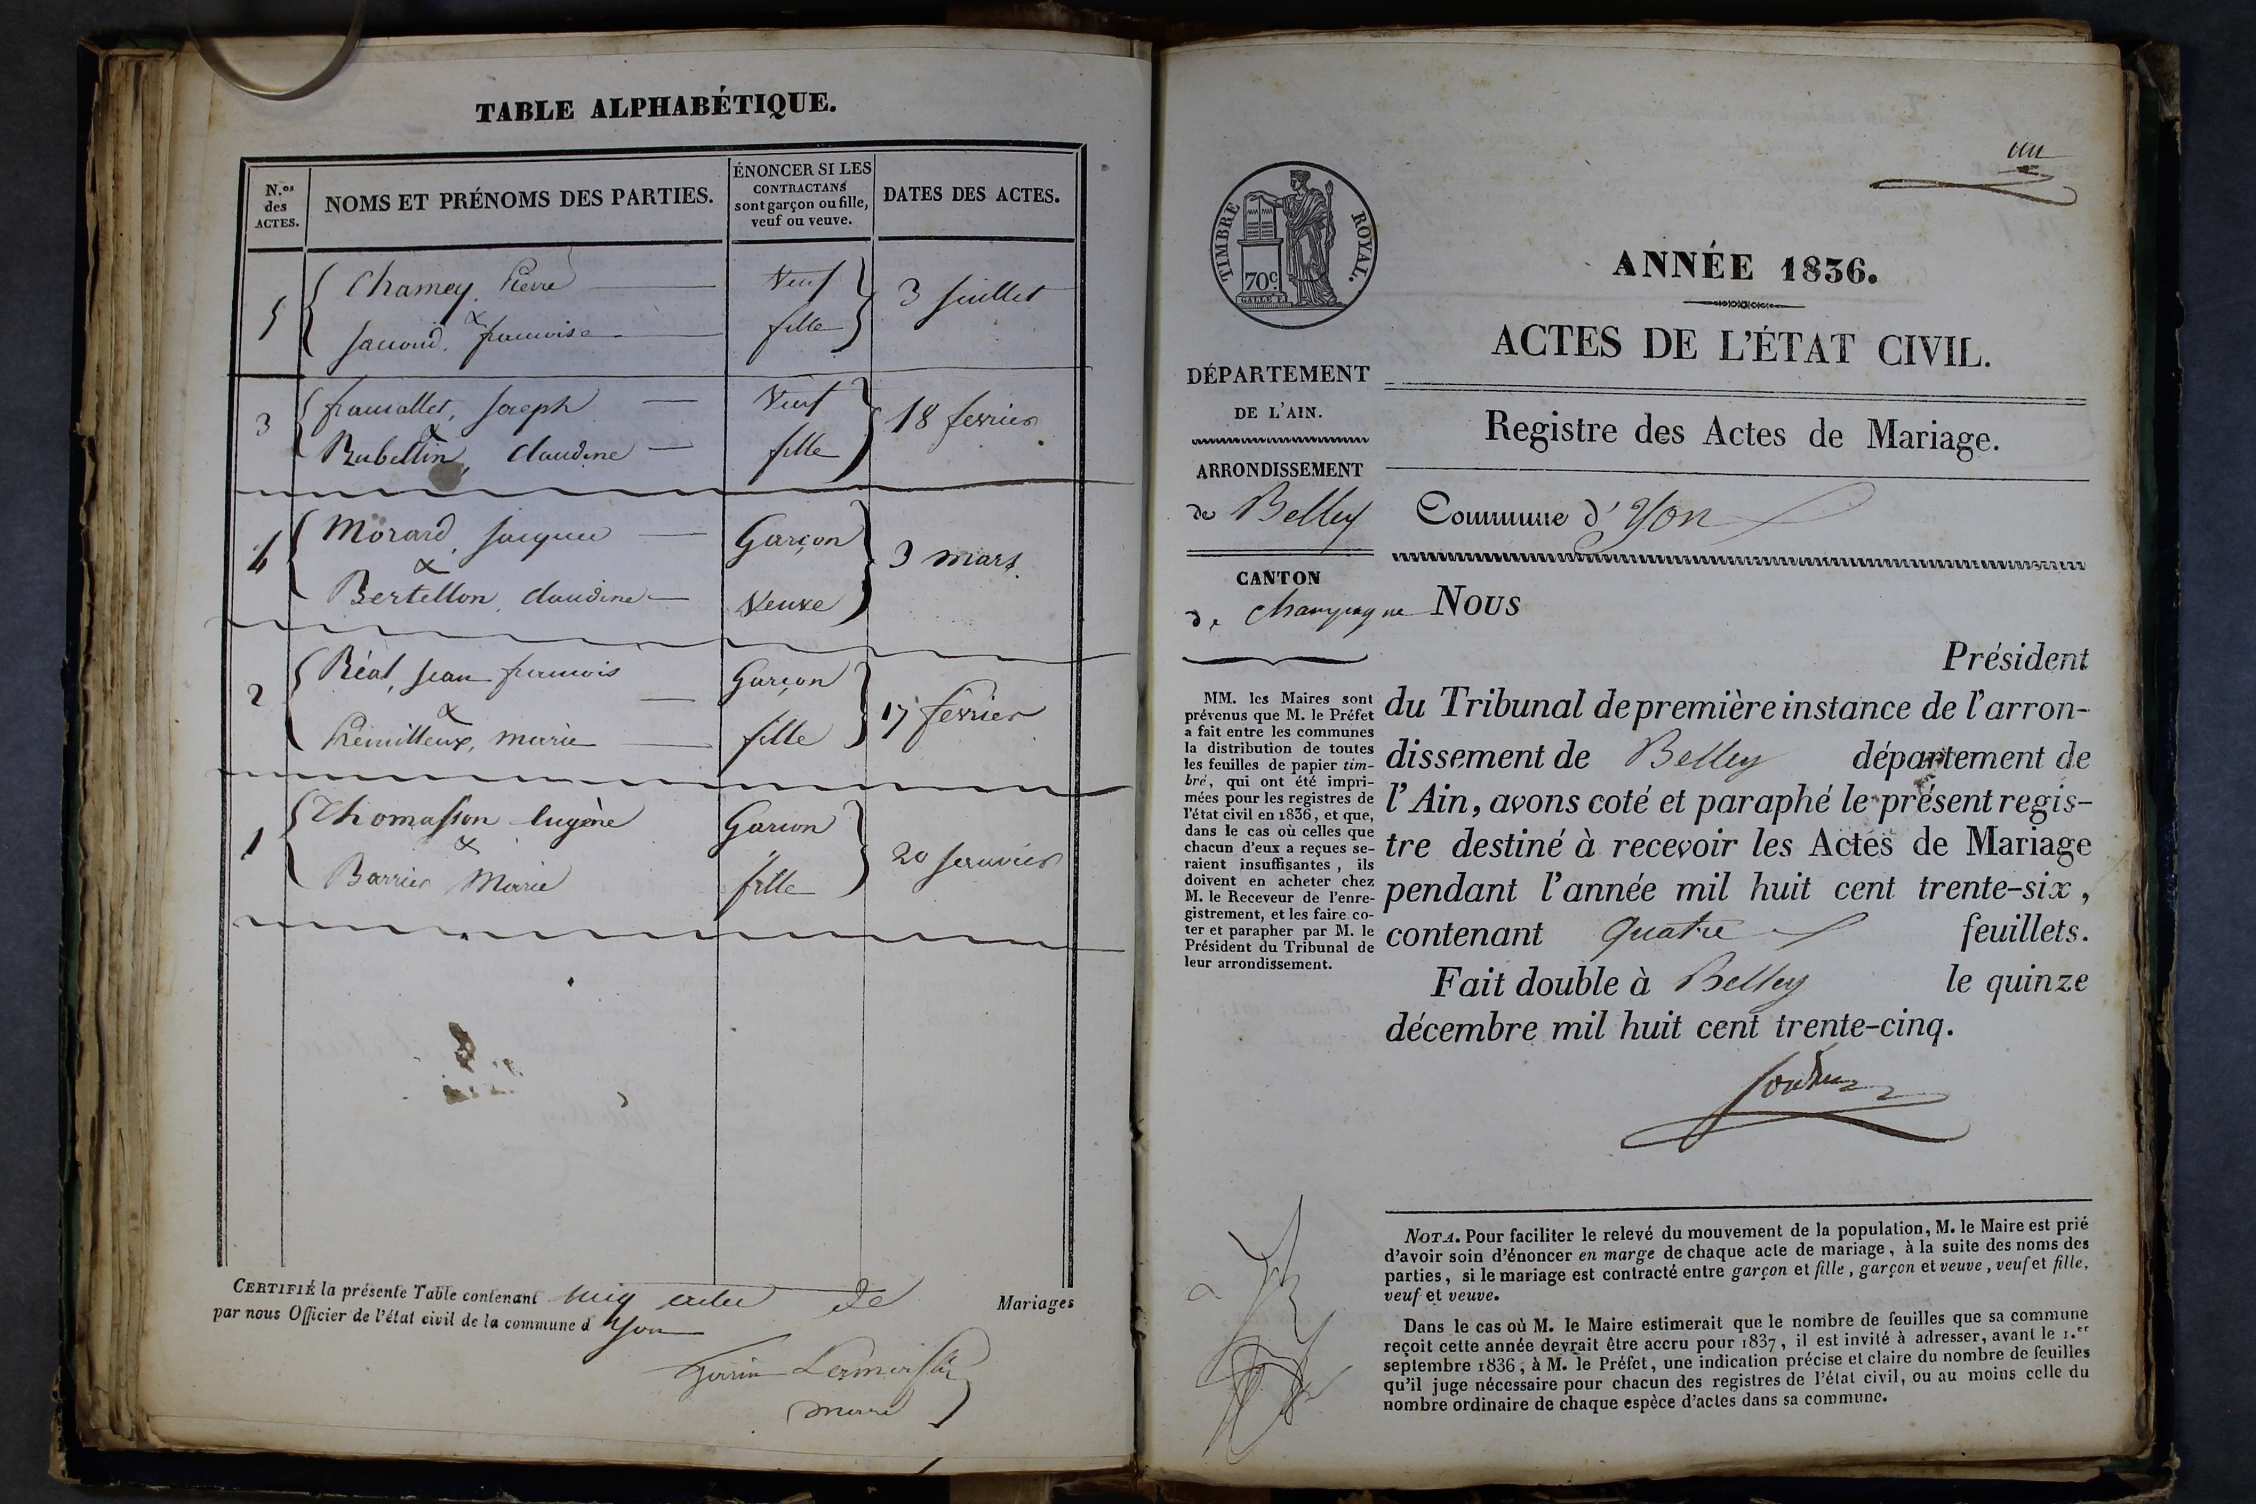 TABLE ALPHABÉTIQUE.
N.os des ACTES.
NOMS ET PRÉNOMS DES PARTIES.
ÉNONCER SI LES
CONTRACTANS
sont garçon ou fille,
veuf ou veuve.
DATES DES ACTES.
5
Chamey, Pierre
Veuf
3 Juillet
&
françoise
fille
3
Joseph
Veuf
18 fevrier
&
Rubellin, Claudine
fille
4
Morard, Jacques
Garçon
3 mars
&
Bertellon, Claudine
Veuve
2
Réal, Jean françois
Garçon
17 fevrier
&
Prémilleux, marie
fille
1
Thomasson Eugène
Garçon
20 Janvier
&
Barrier Marie
fille
CERTIFIÉ la présente Table contenant cinq actes de Mariages
par nous Officier de l'état civil de la commune d'Yon
maire
un
TIMBRE ROYAL.
70c.
ANNÉE 1836.
ACTES DE L'ÉTAT CIVIL.
DÉPARTEMENT
DE L'AIN.
Registre des Actes de Mariage.
ARRONDISSEMENT
de Belley
Commune d'Yon
CANTON
de Champagne
NOUS
Président
du Tribunal de première instance de l'arron-
dissement de Belley département de
l'Ain, avons coté et paraphé le présent regis-
tre destiné à recevoir les Actes de Mariage
pendant l'année mil huit cent trente-six,
contenant quatre feuillets.
Fait double à Belley le quinze
décembre mil huit cent trente-cinq.
MM. les Maires sont
prévenus que M. le Préfet
a fait entre les communes
la distribution de toutes
les feuilles de papier tim-
bré, qui ont été impri-
mées pour les registres de
l'état civil en 1836, et que,
dans le cas où celles que
chacun d'eux a reçues se-
raient insuffisantes, ils
doivent en acheter chez
M. le Receveur de l'enre-
gistrement, et les faire co-
ter et parapher par M. le
Président du Tribunal de
leur arrondissement.
NOTA. Pour faciliter le relevé du mouvement de la population, M. le Maire est prié
d'avoir soin d'énoncer en marge de chaque acte de mariage, à la suite des noms des
parties, si le mariage est contracté entre garçon et fille, garçon et veuve, veuf et fille,
veuf et veuve.
Dans le cas où M. le Maire estimerait que le nombre de feuilles que sa commune
reçoit cette année devrait être accru pour 1837, il est invité à adresser, avant le 1.er
septembre 1836, à M. le Préfet, une indication précise et claire du nombre de feuilles
qu'il juge nécessaire pour chacun des registres de l'état civil, ou au moins celle du
nombre ordinaire de chaque espèce d'actes dans sa commune.